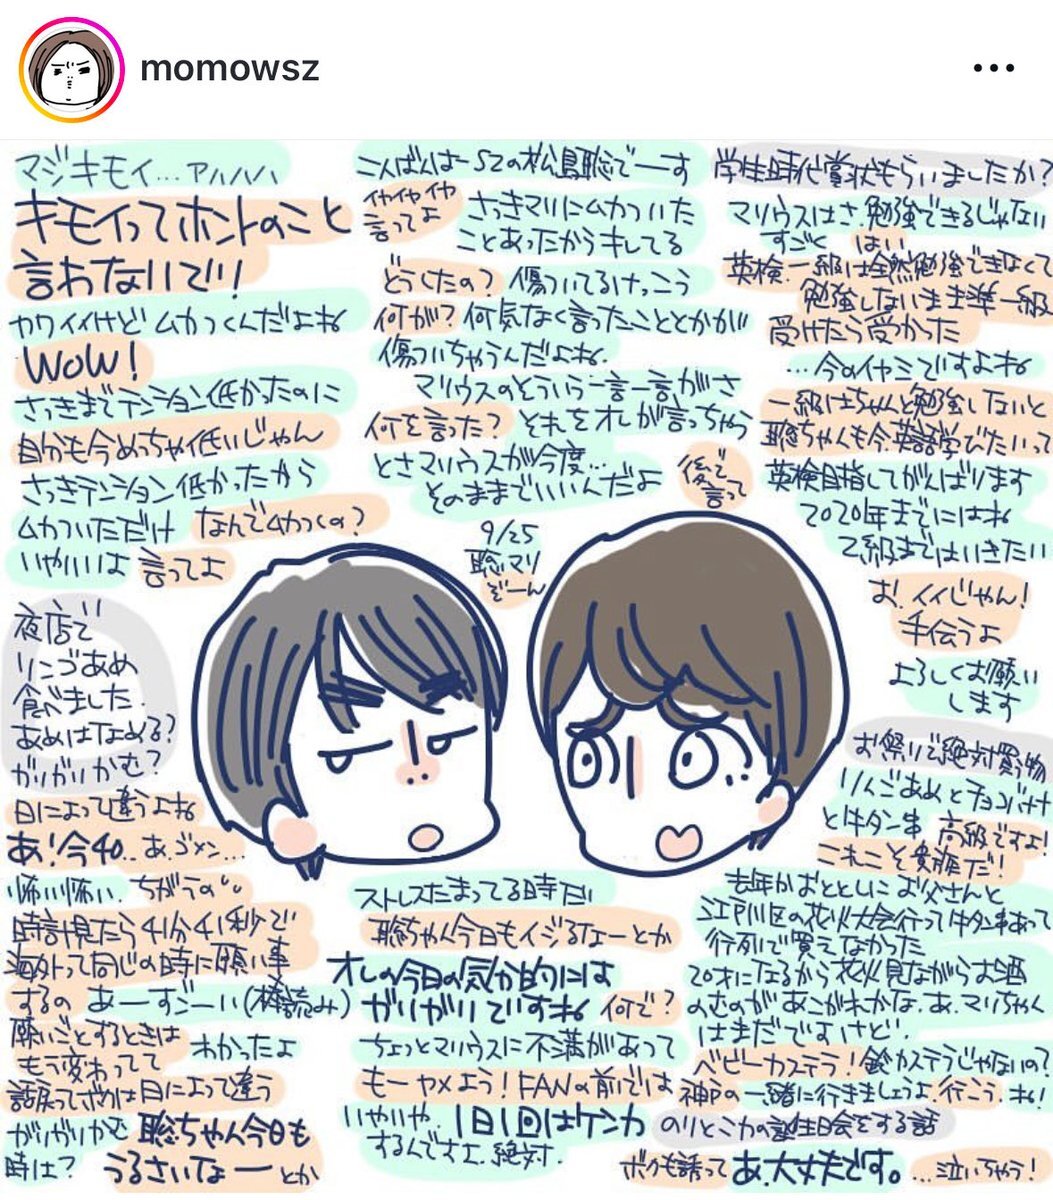 momowsz
マジキモイ…アハハハ
キモイってホントのこと
言わないで!!
カワイイけどムカつくんだよね
WOW!
さっきまでテンション低かったのに
自分も今めっちゃ低いじゃん
さっきテンション低かったから
ムカついただけ なんでムカつくの?
いやいいよ 言ってよ
夜店で
リンゴあめ
食べました.
あめはなめる?
ガリガリかむ?
日によって違うよね
あ!今40..あ.ゴメン…
怖い怖い ちがうの!!
時計見たら41分41秒で
海外って同じの時に願い事
するの あーすごーい(棒読み)
願いごとするときは
もう変わってて わかったよ
話戻ってボクは日によって違う
ガリガリかむ 聡ちゃん今日も
時は? うるさいなーとか
こんばんはーSZの松島聡でーす
イヤイヤイヤ
言ってよ さっきマリにムカついた
ことあったからキレてる
どうしたの? 傷ついてるけっこう
何が? 何気なく言ったこととかが
傷ついちゃうんだよね.
マリウスのそういう一言一言がさ
何を言った? それをオレが言っちゃう
とさマリウスが今度…
そのままでいいんだよ
後で
言って
9/25
聡マリ
ぞーん
ストレスたまってる時だ!
聡ちゃん今日もイジるなーとか
オレの今日の気分的には
ガリガリですね 何で?
ちょっとマリウスに不満があって
もーヤメよう!FANの前では
いやいや.1日1回はケンカ
するんですよ.絶対.
学生時代賞状もらいましたか?
マリウスはさ.勉強できるじゃない
すごく はい
英検.一級は全然勉強できなくて
勉強しないまま準一級
受けたら受かった
…今のイヤミですよね
一級はちゃんと勉強しないと
聡ちゃんも今.英語学びたいって
英検目指してがんばります
2020年までにはね
2級まではいきたい
お.イイじゃん!
手伝うよ
よろしくお願い
します
お祭りで絶対買う物
りんごあめとチョコバナナ
と牛タン串 高級ですよ!
これこそ貴族だ!
去年かおととしにお父さんと
江戸川区の花火大会行って牛タン串あって
行列で買えなかった
20才になるから花火見ながらお酒
のむのがあこがれかな.あ.マリちゃん
はまだですけど!
ベビーカステラ!鈴カステラじゃないの?
神戸の一緒に行きましょうよ.行こう.ね!
のりとミカの誕生日会をする話
ボクも誘って あ.大丈夫です。…泣いちゃう!